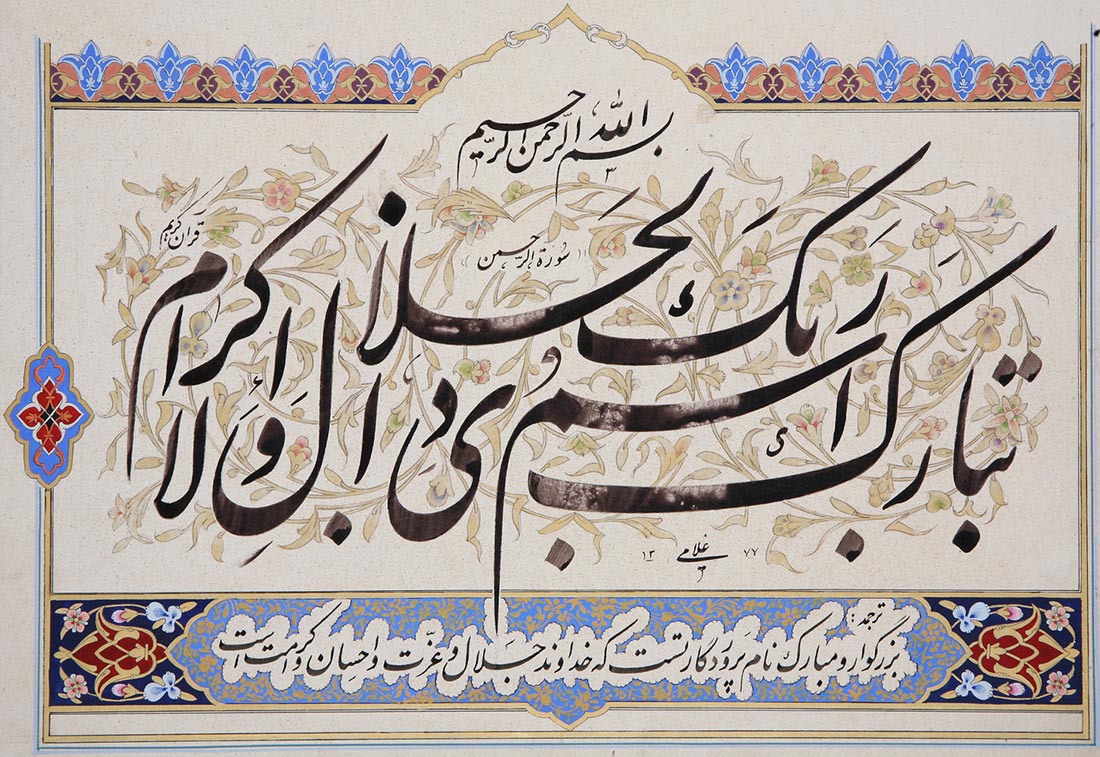 بسم الله الرحمن الرحیم
قرآن کریم
((سورة الرحمن))
تبارک اسم ربک ذی الجلال و الاکرام
۷۷ غلامی ۱۳
ترجمه:
بزرگوار و مبارک نام پروردگار تست که خداوند جلال و عزّت و احسان و کرامت است